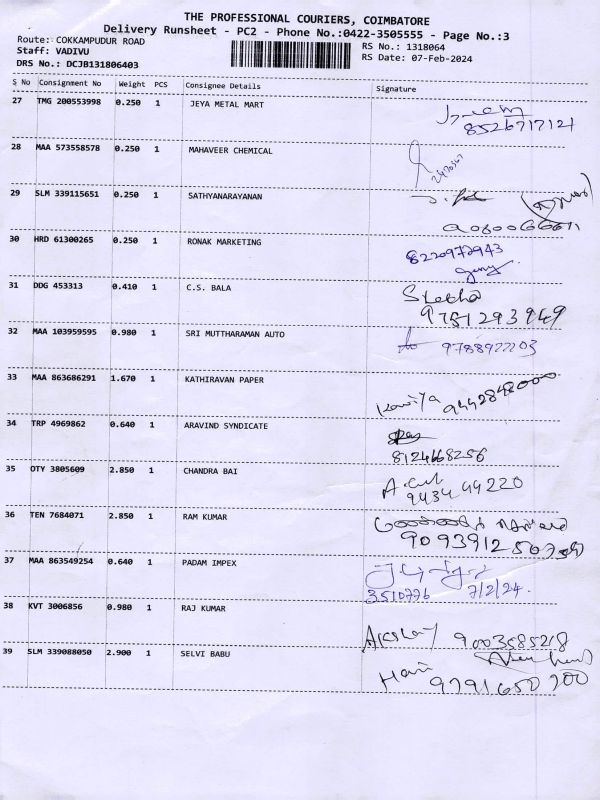 THE PROFESSIONAL COURIERS, COIMBATORE
Delivery Runsheet - PC2 - Phone No.:0422-3505555 - Page No.:3
Route: COKKAMPUDUR ROAD
Staff: VADIVU
DRS No.: DCJB131806403
RS No.: 1318064
RS Date: 07-Feb-2024
S No Consignment No Weight PCS Consignee Details Signature
27 TMG 200553998 0.250 1 JEYA METAL MART
8526717121
28 MAA 573558578 0.250 1 MAHAVEER CHEMICAL
29 SLM 339115651 0.250 1 SATHYANARAYANAN
30 HRD 61300265 0.250 1 RONAK MARKETING
8220972943
31 DDG 453313 0.410 1 C.S. BALA
9751293949
32 MAA 103959595 0.980 1 SRI MUTTHARAMAN AUTO
9788922203
33 MAA 863686291 1.670 1 KATHIRAVAN PAPER
Kaviya 9442848000
34 TRP 4969862 0.640 1 ARAVIND SYNDICATE
8124668256
35 OTY 3805609 2.850 1 CHANDRA BAI
9434 49220
36 TEN 7684071 2.850 1 RAM KUMAR
37 MAA 863549254 0.640 1 PADAM IMPEX
3510776 7/2/24.
38 KVT 3006856 0.980 1 RAJ KUMAR
Akshay 9003585218
39 SLM 339088050 2.900 1 SELVI BABU
Hari 9791650700